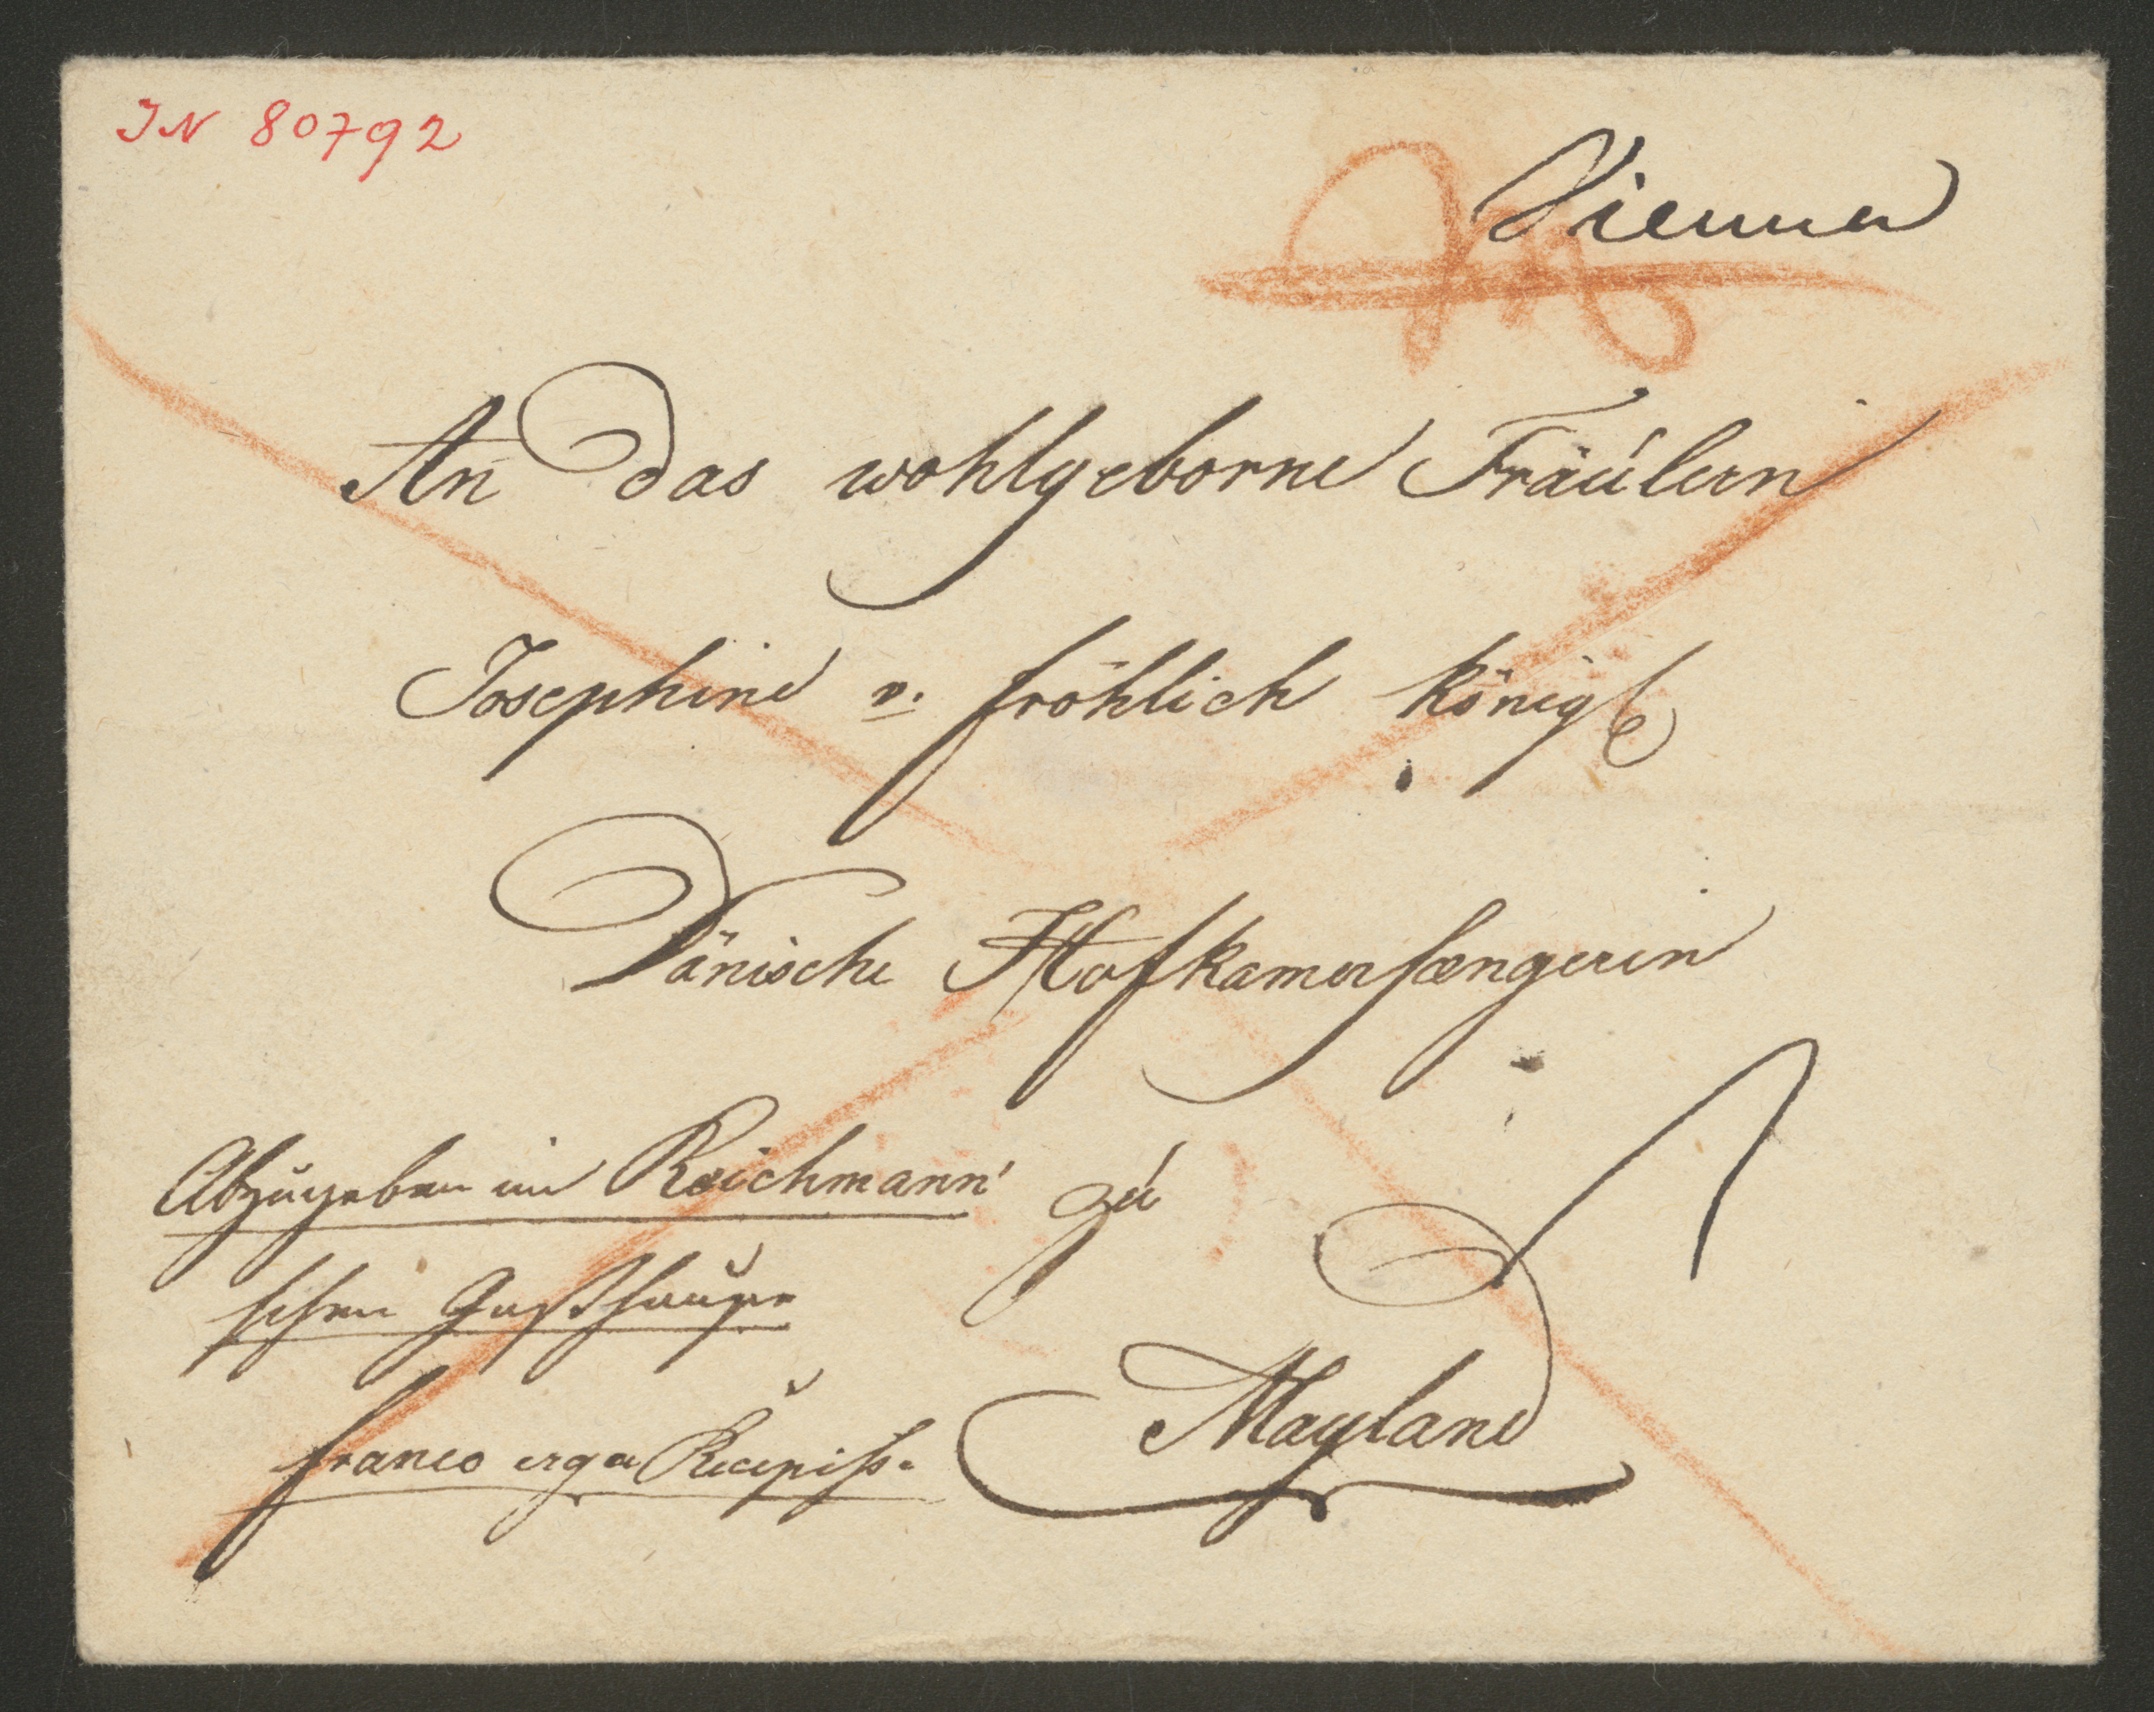 IN 80792
Vienna
An das wohlgeborne Fräulein
Josephine v. fröhlich königl
Dänische Hofkamersængerin
Abzugeben im Reichmann'
schen Gasthause
zu
Mayland
franco erga Recepiss.